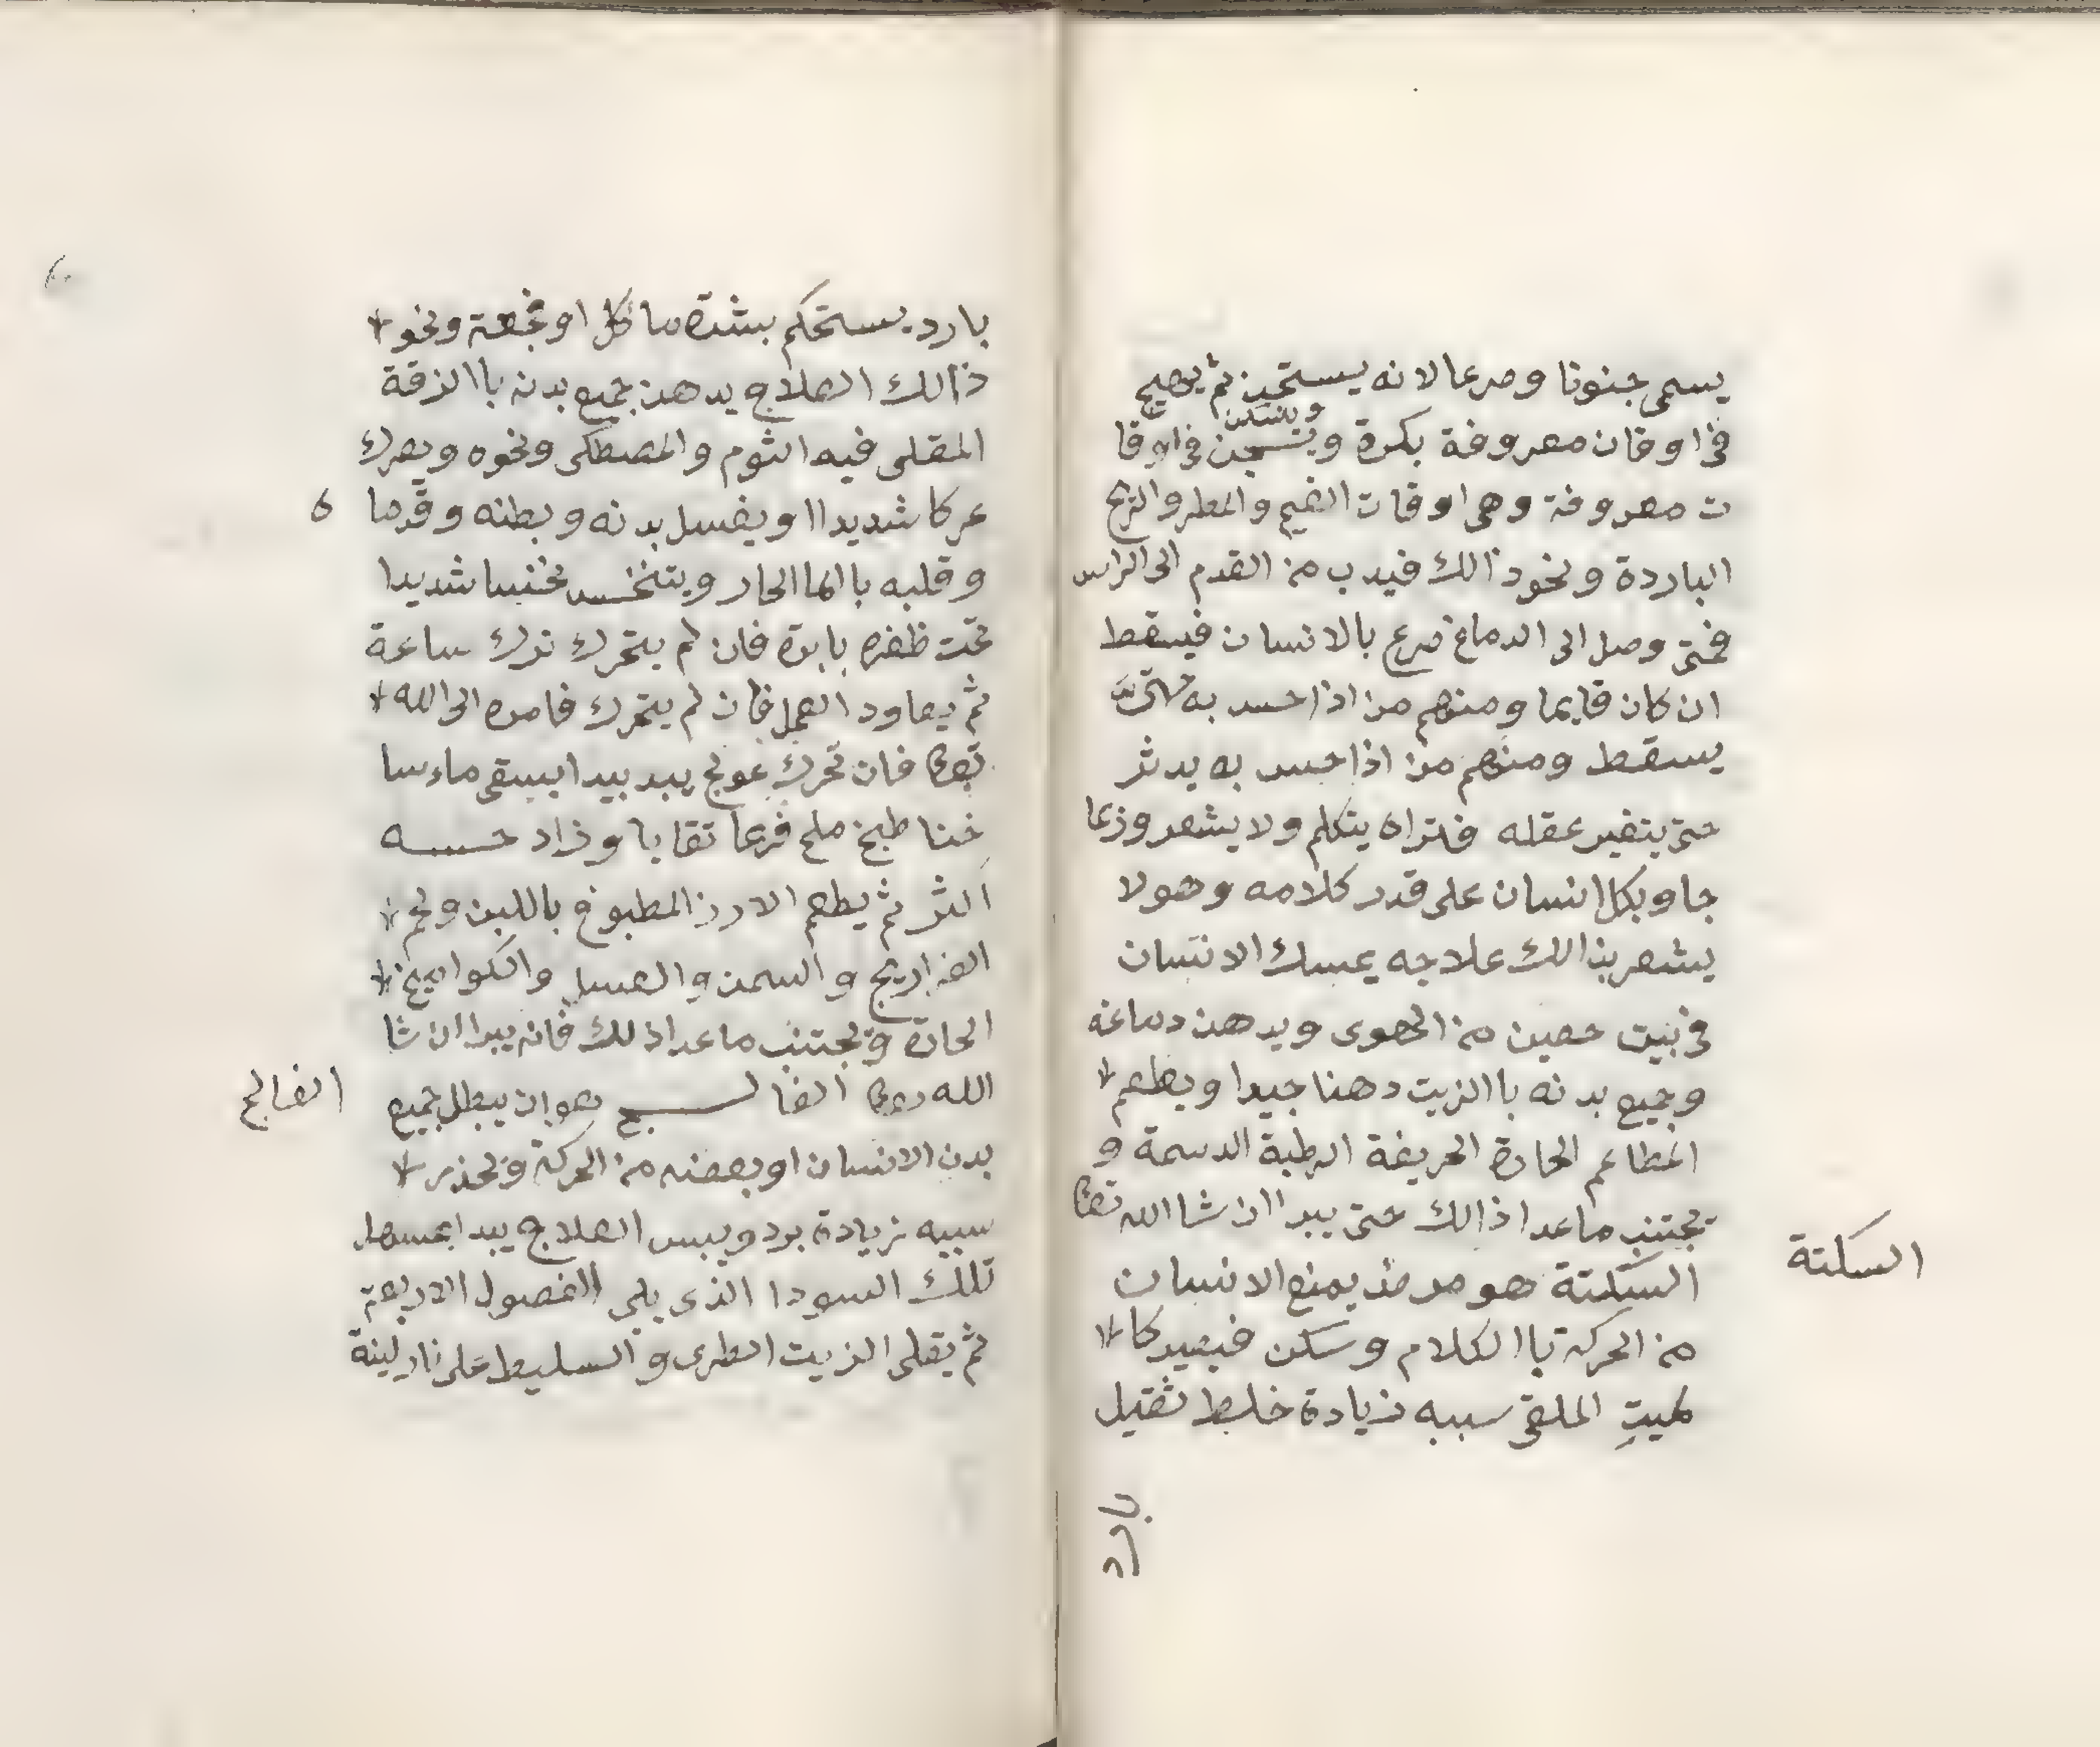 يسمى جنونا وصرعا لانه يستجن ثم يهيج
في اوقات معروفة بكرة ويستجن في اوقا
ويسكن
ت معروفة وهي اوقات الغيم والمطر والريح
الباردة ونحو ذالك فيدب من القدم الى الراس
فمتى وصل الى الدماغ صرع بالانسان فيسقط
ان كان قايما ومنهم من اذا حس به
يسقط ومنهم من اذا حس به يدثر
حتى يتغير عقله فتراه يتكلم ولا يشعر وربما
جاوب كل انسان على قدر كلامه وهو لا
يشعر بذالك علاجه يمسك الانسان
في بيت حصين من الهوى ويدهن دماغه
وجميع بدنه باالزيت دهنا جيدا ويطعم
المطاعم الحارة الحريفة الرطبة الدسمة و
تجتنب ماعدا ذالك حتى يبرا ان شا الله تعا
السكتة
السكتة هو مرض يمنع الانسان
من الحركة باالكلام وسكن فيصير كا
لميتِ الملقى سببه زيادة خلط ثقيل
بارد
بارد يستحكم بشدة ما كل او نحو
ذالك العلاج يدهن جميع بدنه باالزقة
المقلى فيه الثوم والمصطكى ونحوه ويعرك
عركا شديدا او يغسل بدنه وبطنه وقدما
6
وقلبه باالما الحار ويتنخس نخسا شديدا
تحت ظفره بابرة فان لم يتحرك ترك ساعة
ثم يعاود العمل فان لم يتحرك فامره الى الله
تعا فان تحرك عولج يبد بيدا يسقى ماء سا
خنا طبخ ملح فربما تقايا وزاد حسه
اكثر ثم يطعم الارز المطبوخ باللبن ولحم
الفراريج والسمن والعسل والكواميخ
الحارة وتجتنب ماعدا ذلك فانه يبرا ان شا
الله تعا الفالج هو ان يبطل جميع
الفالج
بدن الانسان او بعضه من الحركة ونحذر
سببه زيادة برد ويبس العلاج يبدا بمسهل
تلك السودا الذي يلي الفصول الاربعة
ثم يقلى الزيت الطرى والسليط على نار لينة